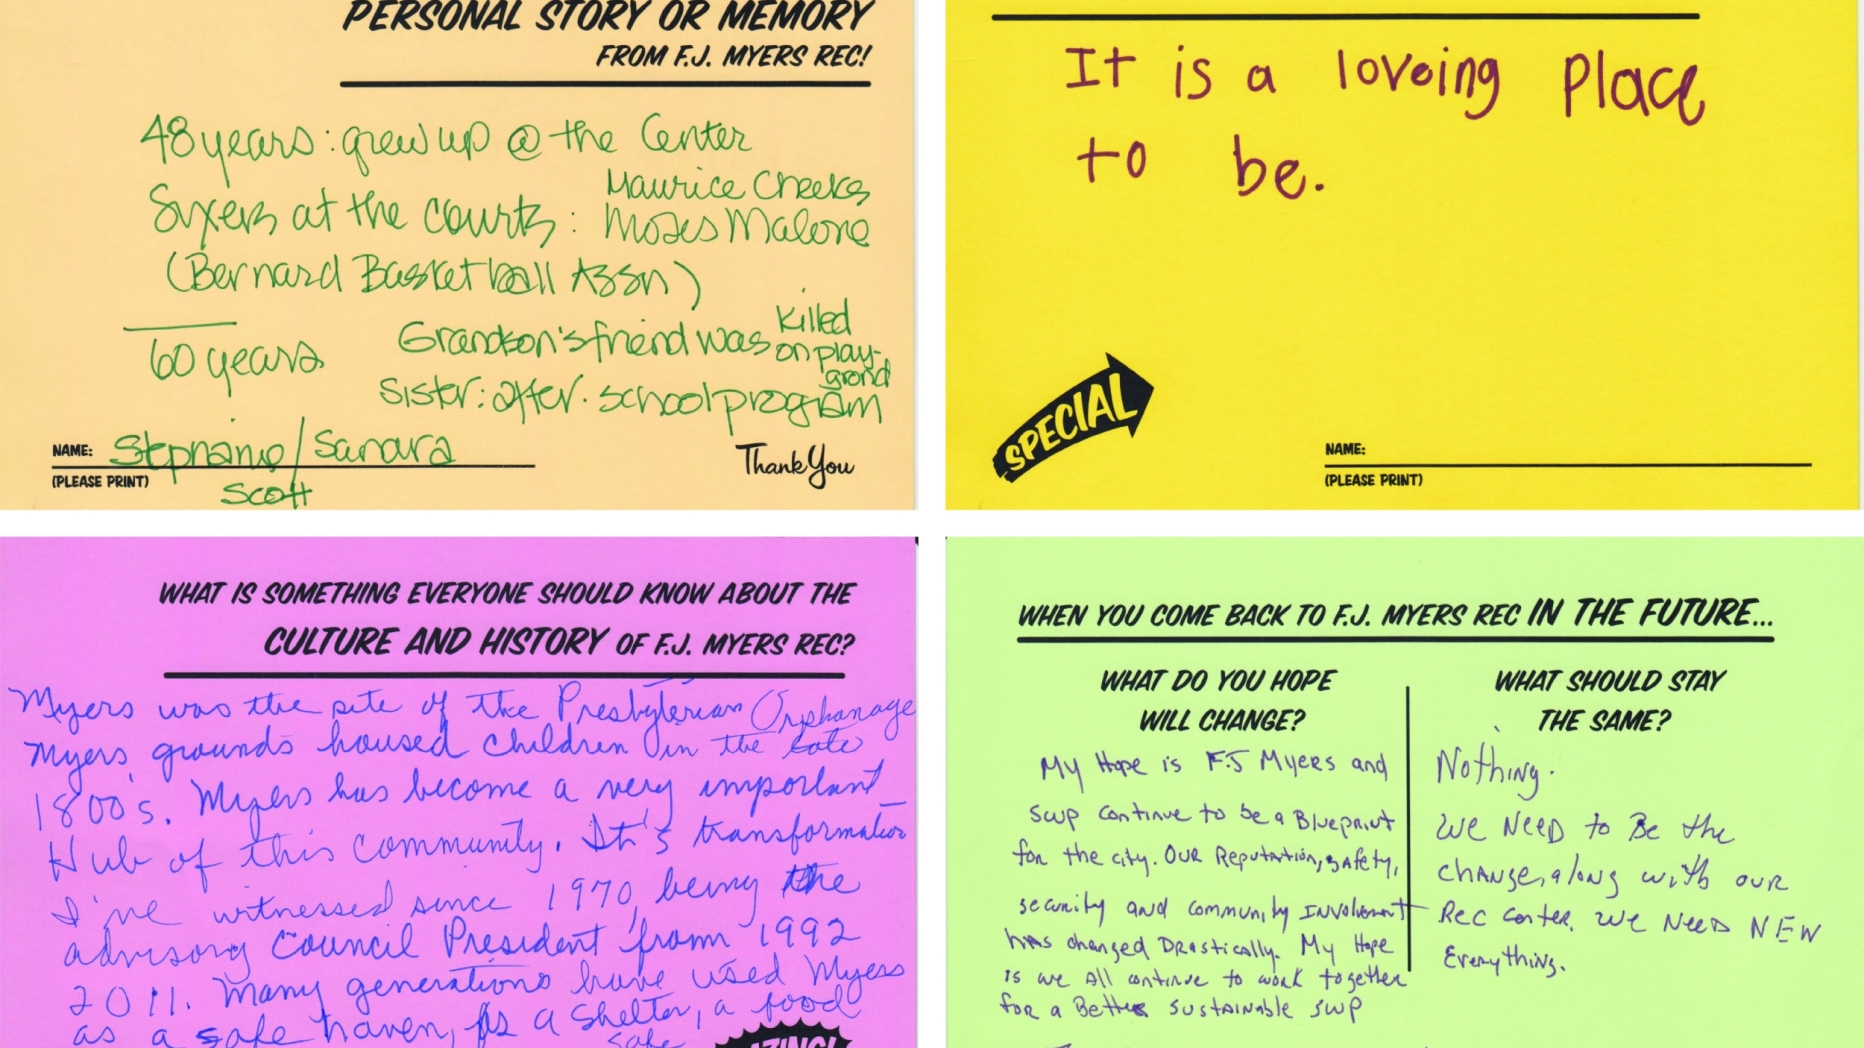 PERSONAL STORY OR MEMORY
FROM F.J. MYERS REC!
48 years: grew up @ the Center
Sixers at the courts: Maurice Cheeks
Moses Malone
(Bernard Basketball Assn)
60 years
Grandson's friend was killed
on play-
grond
Sister: after-school program
NAME: Stephanie/Sandra
Scott
(PLEASE PRINT)
Thank You
It is a loveing place
to be.
SPECIAL
NAME:
(PLEASE PRINT)
WHAT IS SOMETHING EVERYONE SHOULD KNOW ABOUT THE
CULTURE AND HISTORY OF F.J. MYERS REC?
Myers was the site of the Presbyterian Orphanage
Myers grounds housed children in the late
1800's. Myers has become a very important
Hub of this community. It's transformation
I've witnessed since 1970, being the
advisory Council President from 1992
2011. Many generations have used Myers
as a safe haven, As a shelter, a food
safe
AZING!
WHEN YOU COME BACK TO F.J. MYERS REC IN THE FUTURE...
WHAT DO YOU HOPE
WILL CHANGE?
My Hope is F.J Myers and
SWP continue to be a Blueprint
for the city. OUR Reputation, safety,
security and community Involvement
has changed Drastically. My Hope
is we All continue to work together
for a Better sustainable SWP
WHAT SHOULD STAY
THE SAME?
Nothing.
WE NEED to Be the
change, along with our
Rec Center. We Need NEW
Everything.